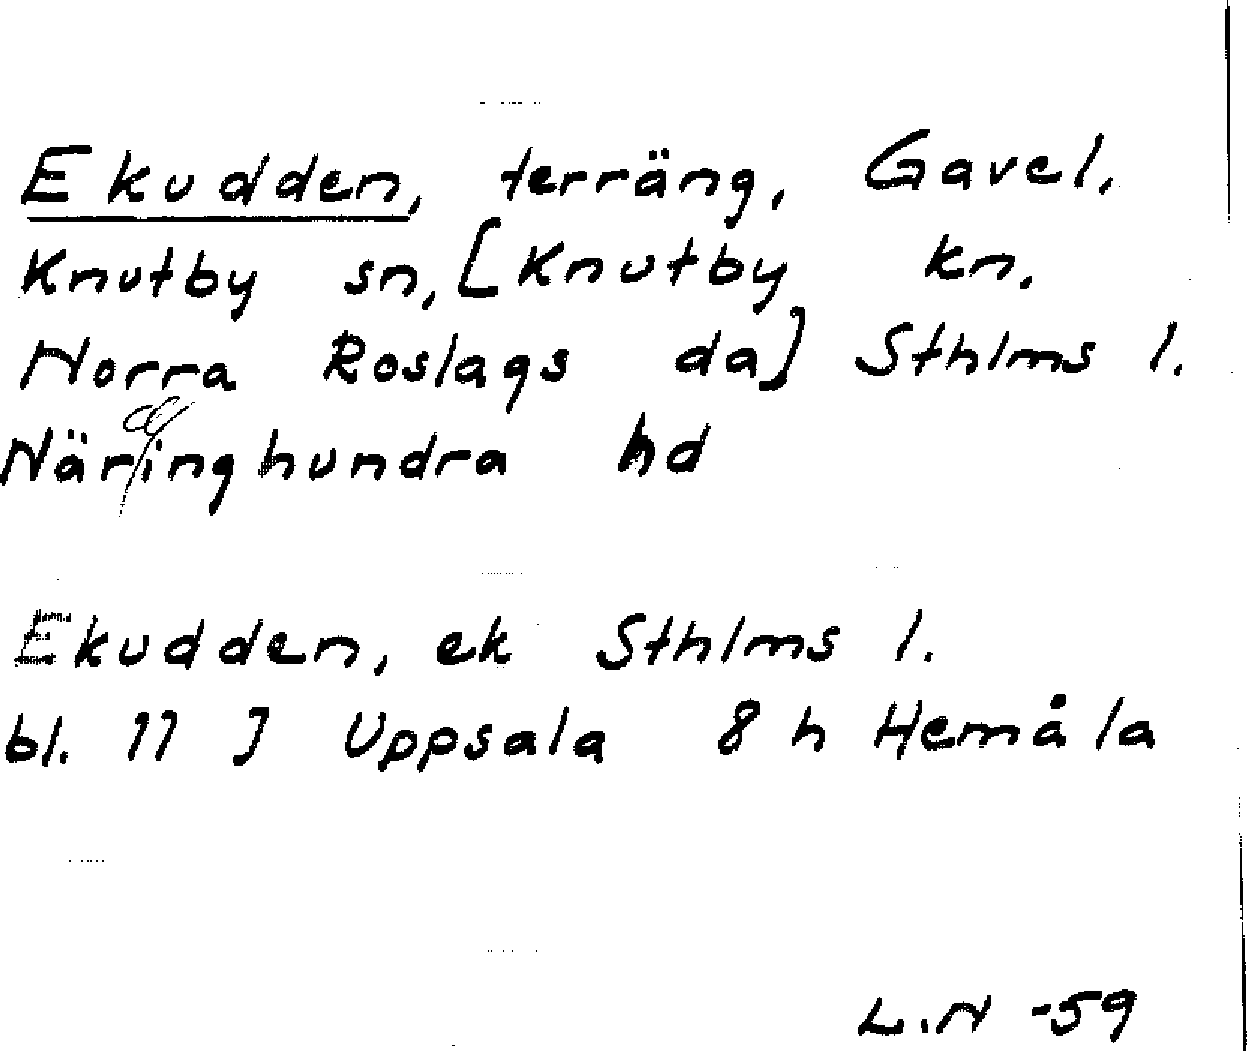 Ekudden, terräng, Gavel,
Knutby sn, [Knutby kn.
Norra Roslags da] Sthlms l.
Närdinghundra hd
Ekudden, ek Sthlms l.
bl. 11 J Uppsala 8 h Hemåla
L.N -59